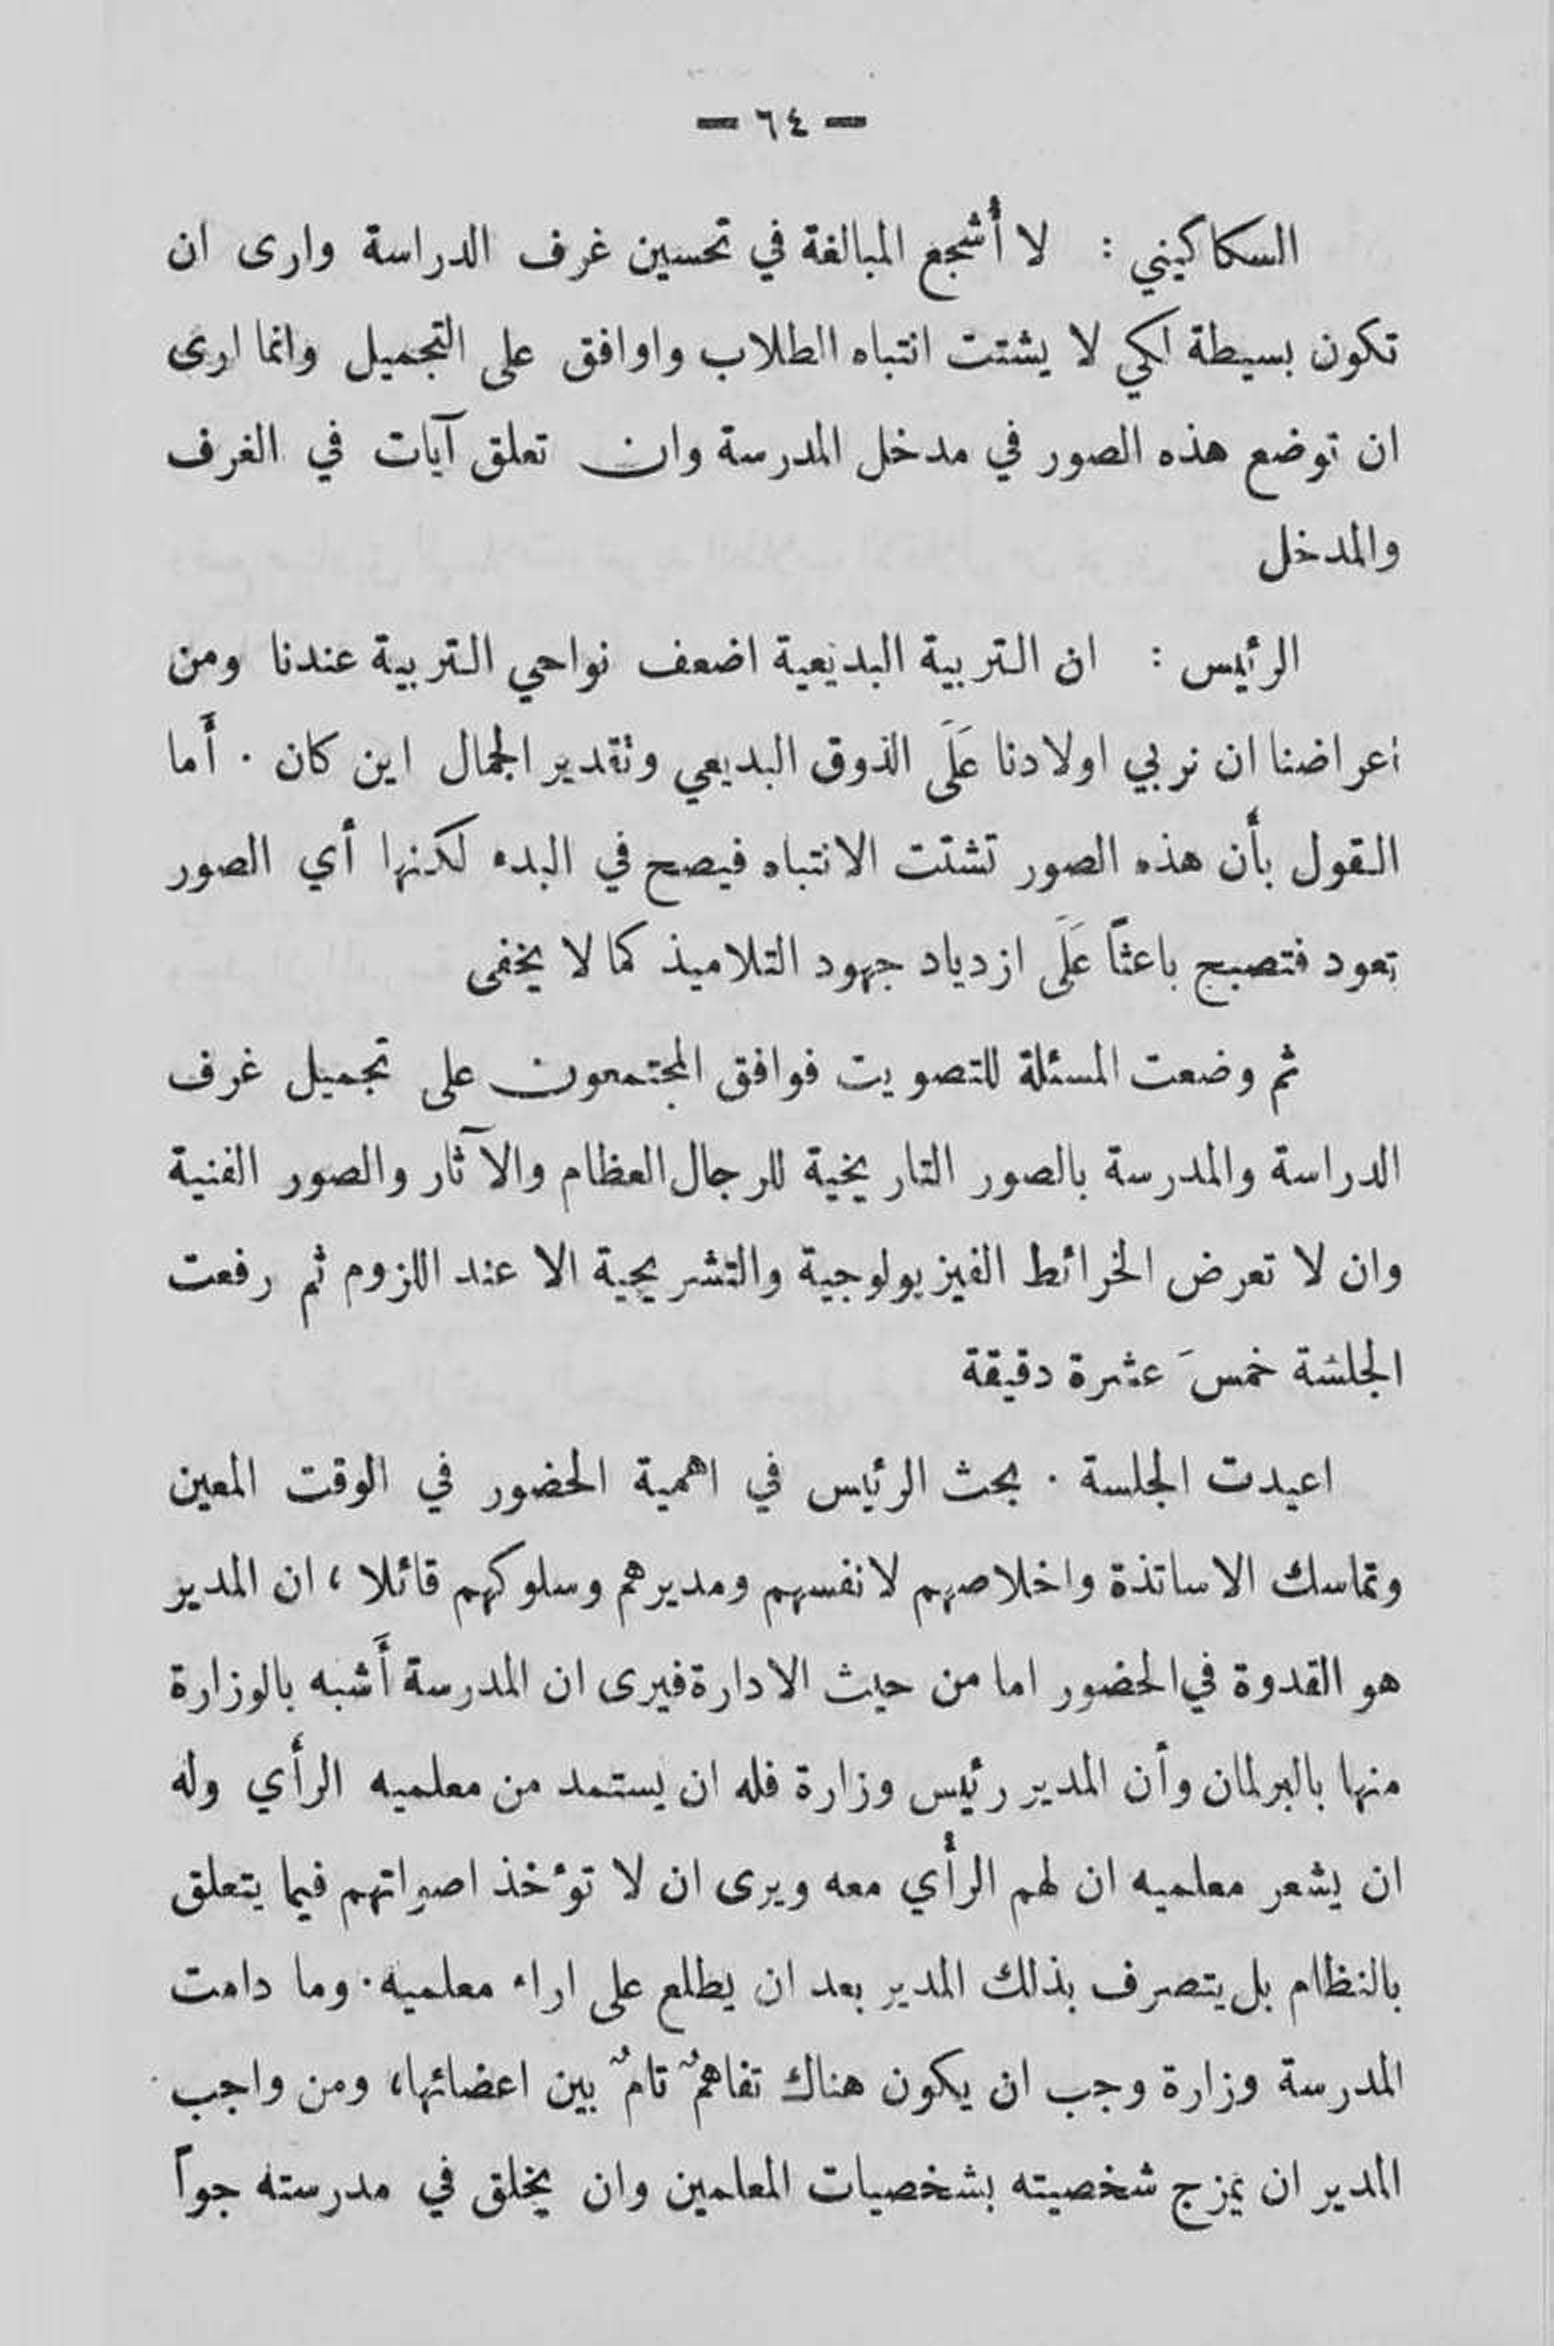 — ٦٤ —
السكاكيني : لا أُشجع المبالغة في تحسين غرف الدراسة وارى ان
تكون بسيطة لكي لا يشتت انتباه الطلاب واوافق على التجميل وانما ارى
ان توضع هذه الصور في مدخل المدرسة وان تعلق آيات في الغرف
والمدخل
الرئيس : ان التربية البديعية اضعف نواحي التربية عندنا ومن
أعراضنا ان نربي اولادنا عَلَى الذوق البديعي وتقدير الجمال اين كان . أَما
القول بأَن هذه الصور تشتت الانتباه فيصح في البدء لكنها أي الصور
تعود فتصبح باعثاً عَلَى ازدياد جهود التلاميذ كما لا يخفى
ثم وضعت المسئلة للتصويت فوافق المجتمعون على تجميل غرف
الدراسة والمدرسة بالصور التاريخية للرجال العظام والآثار والصور الفنية
وان لا تعرض الخرائط الفيزيولوجية والتشريحية الا عند اللزوم ثم رفعت
الجلشة خمسَ عشرة دقيقة
اعيدت الجلسة . بحث الرئيس في اهمية الحضور في الوقت المعين
وتماسك الاساتذة واخلاصهم لانفسهم ومديرهم وسلوكهم قائلا ، ان المدير
هو القدوة في الحضور اما من حيث الادارة فيرى ان المدرسة أَشبه بالوزارة
منها بالبرلمان وأن المدير رئيس وزارة فله ان يستمد من معلميه الرأي وله
ان يشعر معلميه ان لهم الرأي معه ويرى ان لا تؤخذ اصواتهم فيما يتعلق
بالنظام بل يتصرف بذلك المدير بعد ان يطلع على اراء معلميه . وما دامت
المدرسة وزارة وجب ان يكون هناك تفاهمٌ تامٌ بين اعضائها ، ومن واجب
المدير ان يمزج شخصيته بشخصيات المعلمين وان يخلق في مدرسته جواً